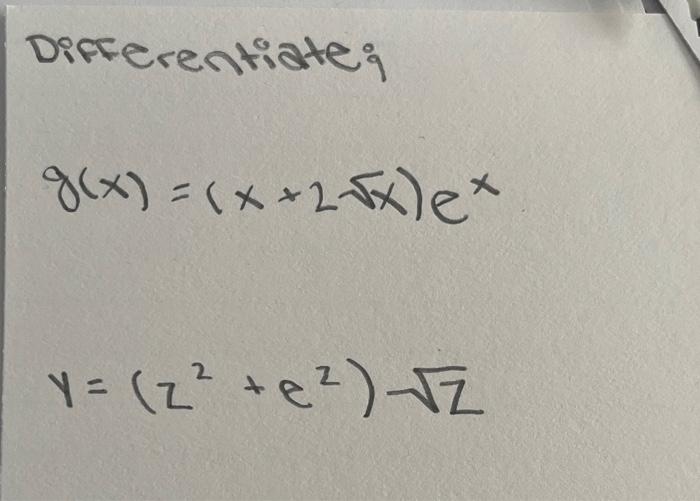 Differentiate;
g(x) = (x + 2√x)e^x
y = (z² + e^z)√z